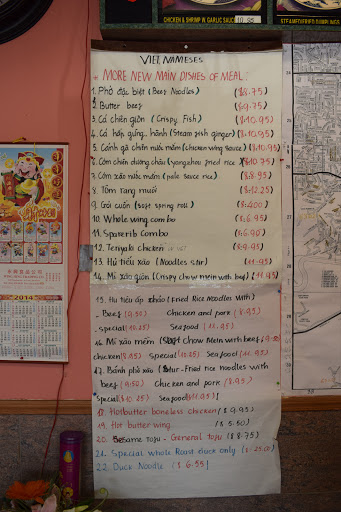 CHICKEN & SHRIMP W GARLIC SAUCE
STEAMED/FRIED DUMPLINGS
VIETNAMESES
MORE NEW MAIN DISHES OF MEAL:
1. Phở đặc biệt (Beef Noodles) ($8.75)
2. Butter beef ($9.75)
3. Cá chiên giòn (Crispy Fish) ($10.95)
4. Cá hấp gừng, hành (Steam fish ginger) ($10.95)
5. Cánh gà chiên nước mắm (chicken wing sauce) ($10.95)
6. Cơm chiên dương châu (yangzhou fried rice) ($10.75
7. Cơm xào nước mắm (pale sauce rice) ($8.95
8. Tôm rang muối ($12.25
9. Gỏi cuốn (soft spring roll) ($4.00
10. Whole wing combo ($6.95
11. Sparerib Combo ($6.90)
12. Teriyaki chicken ($9.95
13. Hủ tiếu xào (Noodles stir) (11.95
14. Mì xào giòn (Crispy chow mein with beef) (11.95
15. Hủ tiếu áp chảo (Fried Rice Noodles with)
- Beef (9.50) Chicken and pork (8.95)
- special (10.25) Seafood (11.95)
16. Mì xào mềm (Soft Chow Mein with beef 9.50
chicken (8.95) Special (10.25) Seafood (11.95)
17. Bánh phở xào (Stir-Fried rice noodles with
beef (9.50) Chicken and pork (8.95)
Special ($10.25) Seafood ($11.95)
18. Hot butter boneless chicken ($9.95)
19. Hot butter wing ($5.50)
20. Sesame Tofu - General Tofu ($8.75)
21. Special whole Roast duck only
22. Duck Noodle ($6.55)
2014